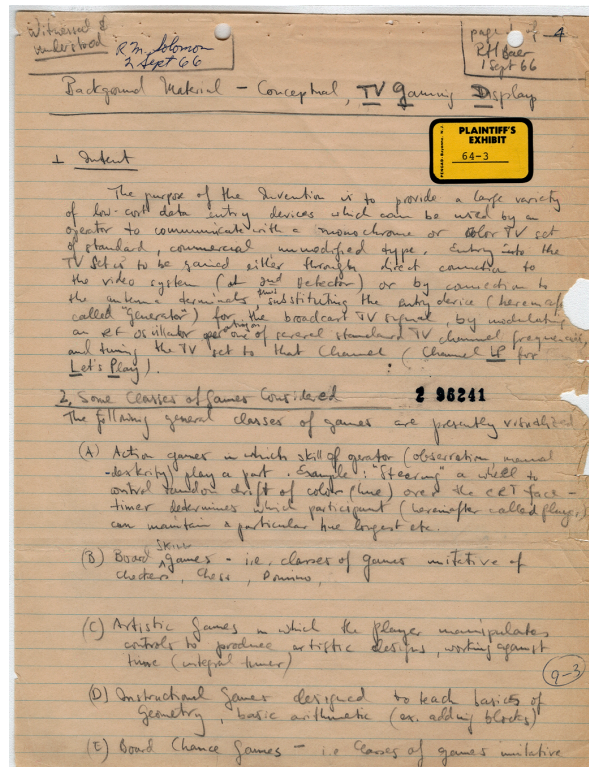 Witnessed &
understood
R.M. Solomon
2 Sept 66
page 1 of 4
RH Baer
1 Sept 66
Background Material – Conceptual, TV Gaming Display
PLAINTIFF'S
EXHIBIT
64-3
1 Intent
The purpose of the Invention is to provide a large variety
of low-cost data entry devices which can be used by an
operator to communicate with a monochrome or color TV set
of standard, commercial unmodified type. Entry into the
TV Set is to be gained either through direct connection to
the video system (at 2nd detector) or by connection to
the antenna terminals, thus substituting the entry device (hereinafter
called "generator") for the broadcast TV signal, by modulating
an RF oscillator operating on one of several standard TV channel frequencies,
and tuning the TV set to that channel (Channel LP for
Let's Play).
2. Some Classes of Games Considered
2 96241
The following general classes of games are presently visualized
(A) Action games in which skill of operator (observation manual
-dexterity) play a part. Example: "Steering" a wheel to
control random drift of color (hue) over the CRT face -
timer determines which participant (hereinafter called player)
can maintain a particular hue longest etc.
(B) Board Skill Games – i.e. classes of games imitative of
checkers, Chess, Domino,
(C) Artistic Games in which the player manipulates
controls to produce artistic designs, working against
time (integral timer)
9-3
(D) Instructional Games designed to teach basics of
Geometry, basic arithmetic (ex. adding blocks)
(E) Board Chance Games – i.e classes of games imitative